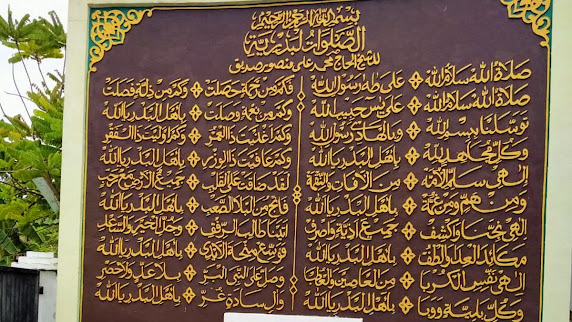 بسم الله الرحمن الرحيم
الصلوات البدرية
للشيخ الحاج محمد على منصور صديق
صلاة الله سلام الله ❖ على طه رسول الله
صلاة الله سلام الله ❖ على يس حبيب الله
توسلنا ببسم الله ❖ وبالهادى رسول الله
وكل مجاهد لله ❖ باهل البدر يا الله
الهى سلم الأمة ❖ من الافات والنقمة
ومن هم ومن غمة ❖ باهل البدر يا الله
الهى نجنا واكشف ❖ جميع اذية واصرف
مكائد العدا والطف ❖ باهل البدر يا الله
الهى نفس الكربا ❖ من العاصين والعطبا
وكل بلية ووبا ❖ باهل البدر يا الله
فكم من رحمة حصلت ❖ وكم من ذلة فصلت
وكم من نعمة وصلت ❖ باهل البدر يا الله
وكم اغنيت ذا العمر ❖ وكم اوليت ذا الفقر
وكم عافيت ذا الوزر ❖ باهل البدر يا الله
لقد ضاقت على القلب ❖ جميع الارض مع رحب
فانج من البلا الصعب ❖ باهل البدر يا الله
اتينا طالبى الرفق ❖ وجل الخير والسعد
فوسع منحة الايدى ❖ باهل البدر يا الله
وصل على النبى البر ❖ بلا عد ولا حصر
وآل سادة غر ❖ باهل البدر يا الله